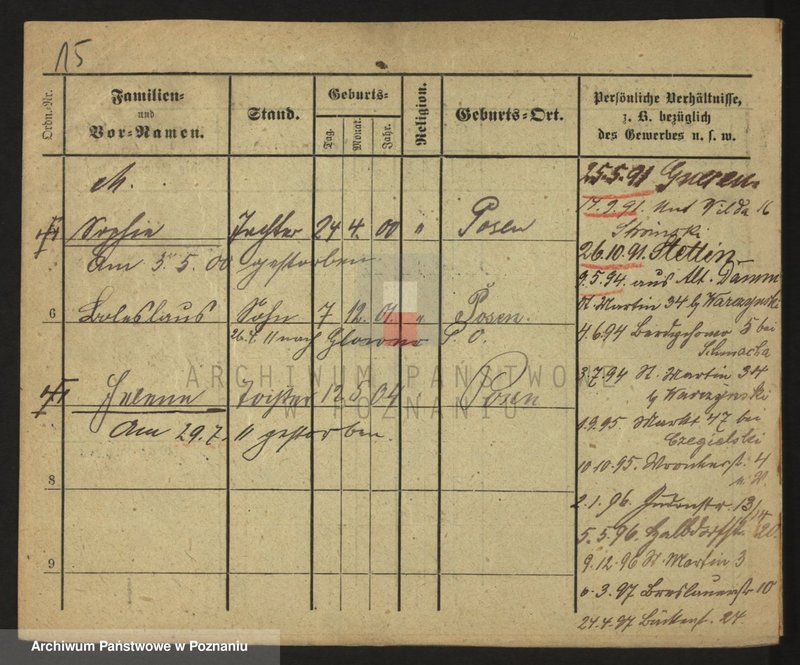 15
Ordn.-Nr.
Familien- und Vor-Namen.
Stand.
Geburts-
Tag.
Monat.
Jahr.
Religion.
Geburts-Ort.
Persönliche Verhältnisse,
z. B. bezüglich
des Gewerbes u. s. w.
Sophie Tochter 24 4. 00 " Posen
Am 5. 5. 00 gestorben
6 Boleslaus Sohn 7 12. 01. " Posen.
26. 4. 11 nach S. O.
Helene Tochter 12 5. 04 Posen
Am 29. 7. 11 gestorben.
8
9
25.5.91 Gnesen.
17.9.91. Unt Wilda 16
26.10.91. Stettin
9.5.94. aus Alt. Damm
St. Martin 34 b/ Warzynski
4.6.94 5 bei
3.7.94 St. Martin 34
b/ Warzynski
1.9.95. Markt 47 bei
Czegielski
10.10.95. Wronkerst. 4
2.1.96. 13/14
5.5.96. Halbdorfstr. 20.
9.12.96 St. Martin 3
3.97 Breslauerstr 10
24.4.97. 24.
ARCHIWUM PAŃSTWOWE
W POZNANIU
Archiwum Państwowe w Poznaniu